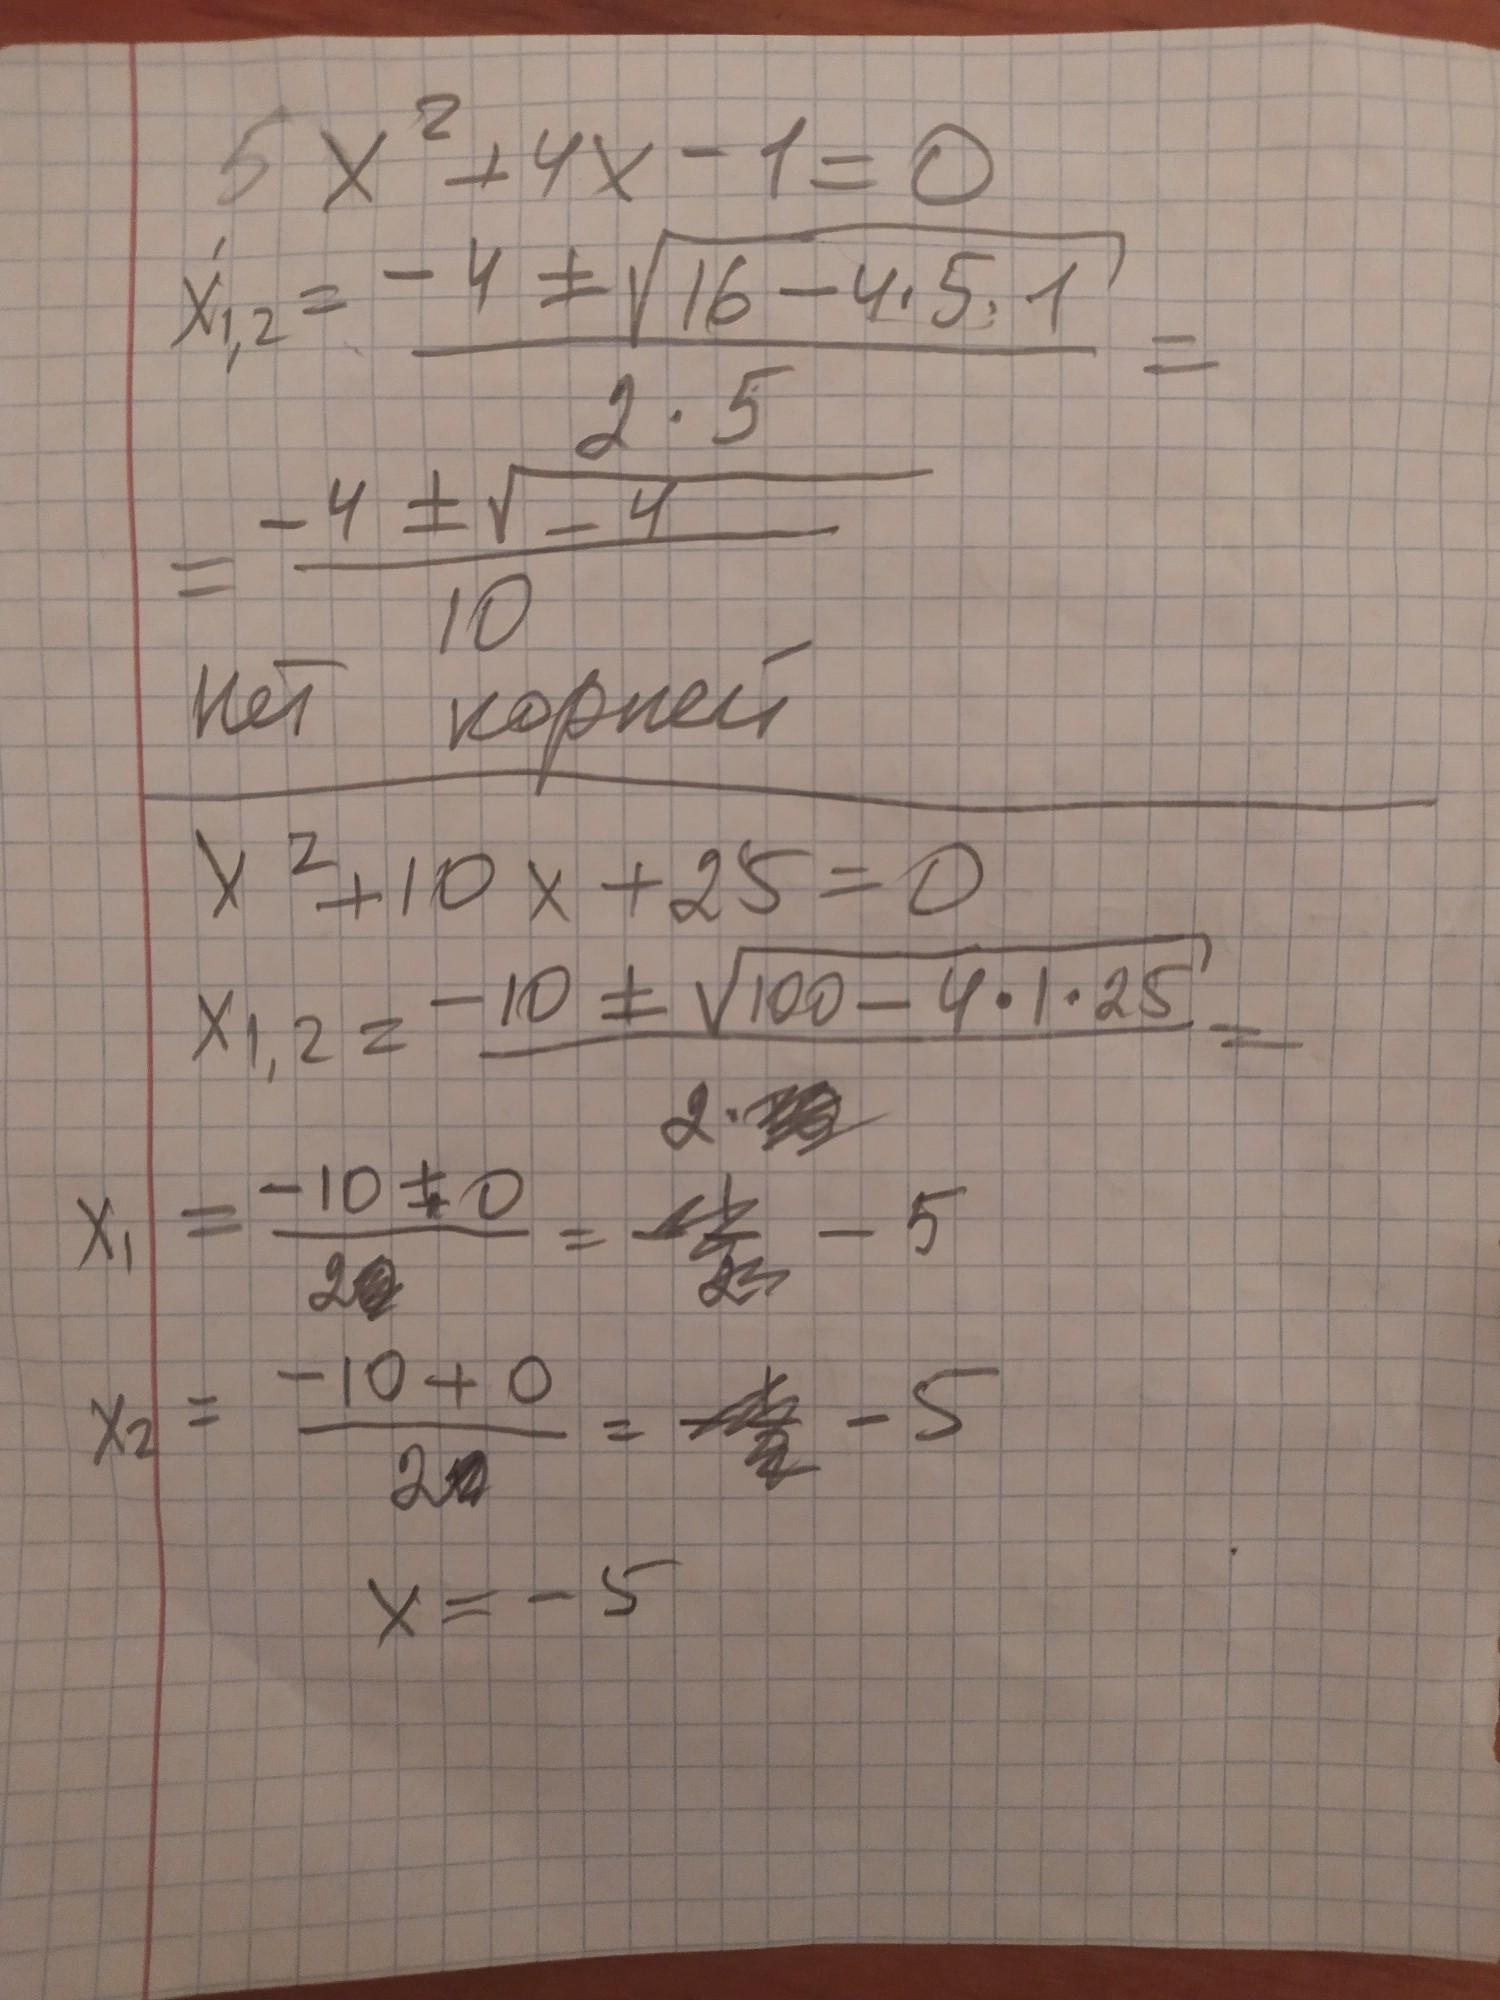 5x² + 4x - 1 = 0
x₁,₂ = (-4 ± √(16 - 4·5·1)) / (2·5) =
= (-4 ± √(-4)) / 10
нет корней
x² + 10x + 25 = 0
x₁,₂ = (-10 ± √(100 - 4·1·25)) / (2·) =
x₁ = (-10 ± 0) / 2 = -5
x₂ = (-10 + 0) / 2 = -5
x = -5